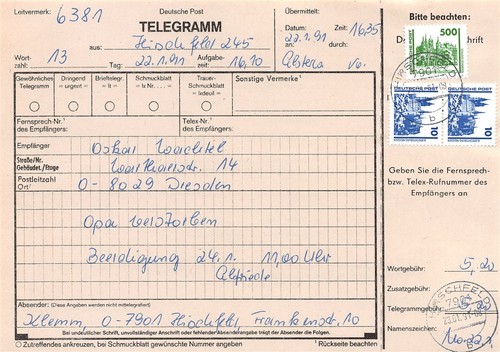 Leitvermerk: 6381
Deutsche Post
TELEGRAMM
aus: Hirschfeld 245
Wort-zahl: 13
Tag: 22.1.91
Aufgabe-zeit: 16,10
Übermittelt:
Datum: 22.1.91
Zeit: 1635
an:
durch:
Bitte beachten:
500
DEUTSCHE POST
DEUTSCHE POST
10
10
Gewöhnliches Telegramm
Dringend = urgent =
Brieftelegr. = lt =
Schmuckblatt = lx Nr. . . . =
Trauer-Schmuckblatt = lxdeuil =
Sonstige Vermerke¹
Fernsprech-Nr.¹ des Empfängers:
Telex-Nr.¹ des Empfängers:
Empfänger
Oskar Wachtel
Straße/Nr. Gebäudet./Etage
14
Postleitzahl Ort¹
O-8029 Dresden
Opa verstorben
Beerdigung 24.1. 11,00 Uhr
Elfriede
Geben Sie die Fernsprech- bzw. Telex-Rufnummer des Empfängers an
Wortgebühr: 5,20
Zusatzgebühr:
Telegrammgebühr:
Namenszeichen:
Absender: (Diese Angaben werden nicht mittelegrafiert)
Klemm O-7901 Hirschfeld Frankenstr. 10
Bei undeutlicher Schrift, unvollständiger Anschrift oder fehlender Absenderangabe trägt der Absender die Folgen.
○ Zutreffendes ankreuzen, bei Schmuckblatt gewünschte Nummer angeben
¹ Rückseite beachten